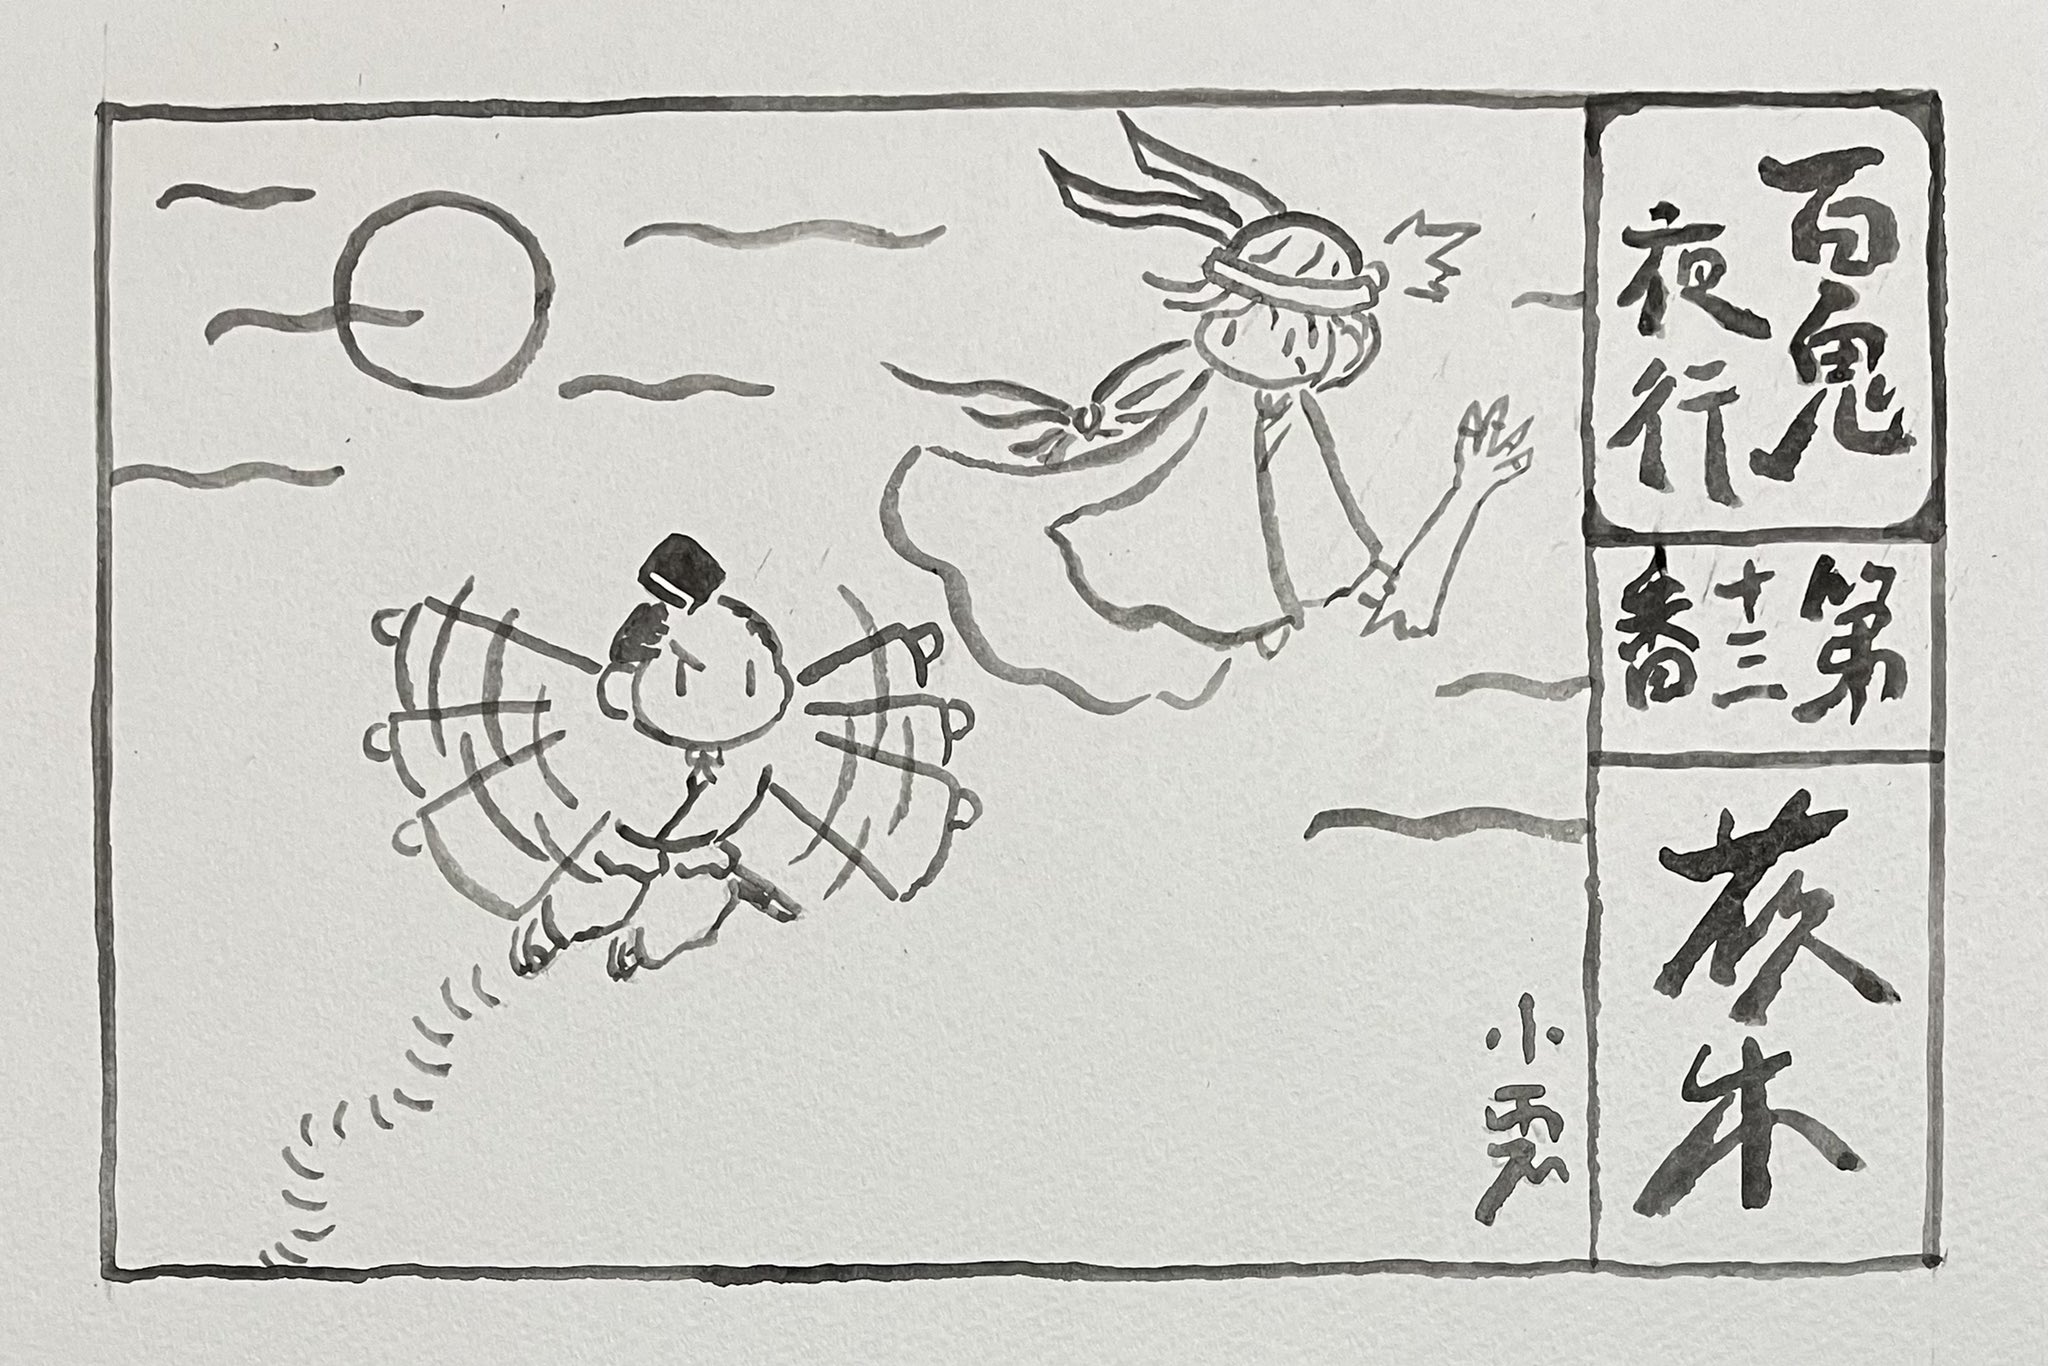 百鬼
夜行
第
十三
番
茨木
小